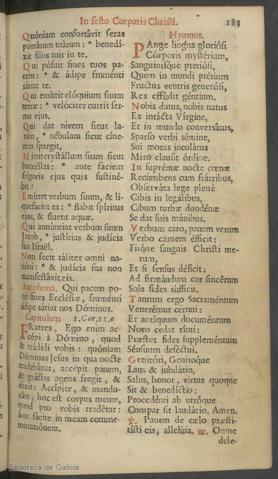 In festo Corporis Christi. 183
Quóniam confortávit seras
portárum tuárum: * benedí-
xit filiis tuis in te.
Qui pósuit fines tuos pa-
cem: * & ádipe fruménti
sátiat te.
Qui emíttit elóquium suum
terræ: * velóciter currit ser-
mo ejus.
Qui dat nivem sicut la-
nam, * nébulam sicut cíne-
rem spargit,
Mittit crystállum suam sicut
buccéllas: * ante fáciem
frígoris ejus quis sustiné-
bit?
Emíttet verbum suum, & li-
quefáciet ea: * flabit spíritus
ejus, & fluent aquæ.
Qui annúntiat verbum suum
Jacob, * justítias & judícia
sua Israël.
Non fecit táliter omni na-
tióni: * & judícia sua non
manifestávit eis.
Antiphona. Qui pacem po-
nit fines Ecclésiæ, fruménti
ádipe sátiat nos Dóminus.
Capitulum. 1. Cor. 11. e
FRatres, Ego enim ac-
cépi à Dómino, quod
& trádidi vobis: quóniam
Dóminus Jesus in qua nocte
tradebátur, accépit panem,
& grátias agens fregit, &
dixit: Accípite, & mandu-
cáte, hoc est corpus meum,
quod pro vobis tradétur:
hoc fácite in meam comme-
moratiónem.
Hymnus.
PAnge lingua gloriósi
Córporis mystérium,
Sanguinísque pretiósi,
Quem in mundi prétium
Fructus ventris generósi,
Rex effúdit géntium.
Nobis datus, nobis natus
Ex intácta Vírgine,
Et in mundo conversátus,
Sparso verbi sémine,
Sui moras incolátus
Miro clausit órdine.
In suprémæ nocte cœnæ
Recúmbens cum frátribus,
Observáta lege plenè
Cibis in legálibus,
Cibum turbæ duodénæ
Se dat suis mánibus.
Verbum caro, panem verum
Verbo carnem éfficit:
Fitque sanguis Christi me-
rum,
Et si sensus déficit;
Ad firmándum cor sincérum
Sola fides súfficit.
Tantum ergo Sacraméntum
Venerémur cérnui:
Et antíquum documéntum
Novo cedat rítui:
Præstet fides suppleméntum
Sénsuum deféctui.
Genitóri, Genitóque
Laus & jubilátio,
Salus, honor, virtus quoque
Sit & benedíctio:
Procedénti ab utróque
Compar sit laudátio, Amen.
℣. Panem de cælo præsti-
tísti eis, allelúia. ℟. Omne
dele-
Biblioteca de Galicia